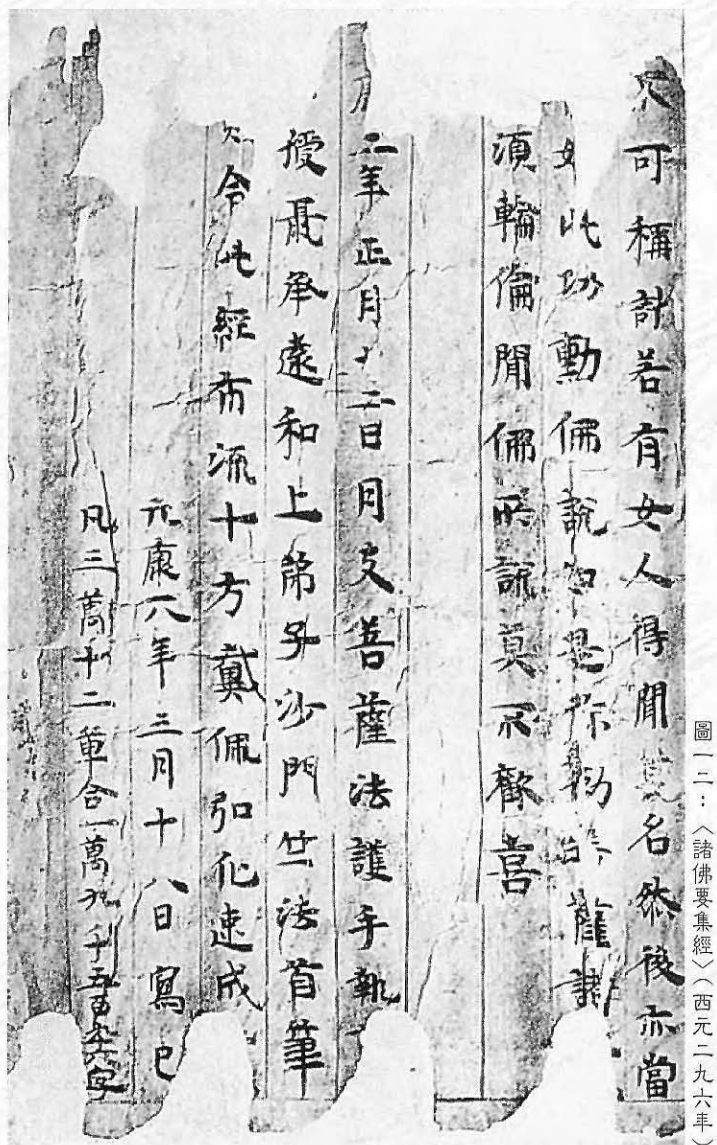 圖一二：〈諸佛要集經〉（西元二九六年）
不可稱計若有女人得聞名然後亦當
如此功勳佛說如是弥勒菩薩諸
須輪倫聞佛所說莫不歡喜
二年正月十二日月支菩薩法護手執
授聶承遠和上弟子沙門竺法首筆
令此經布流十方戴佩弘化速成
元康六年三月十八日寫已
凡三萬十二章合一萬九千五百九十六字